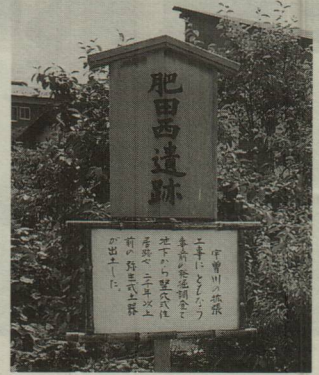 肥田西遺跡
宇曽川の拡張
工事にともなう
事前の発掘調査で
地下から竪穴式住
居跡や二千年以上
前の弥生式土器
が出土した。